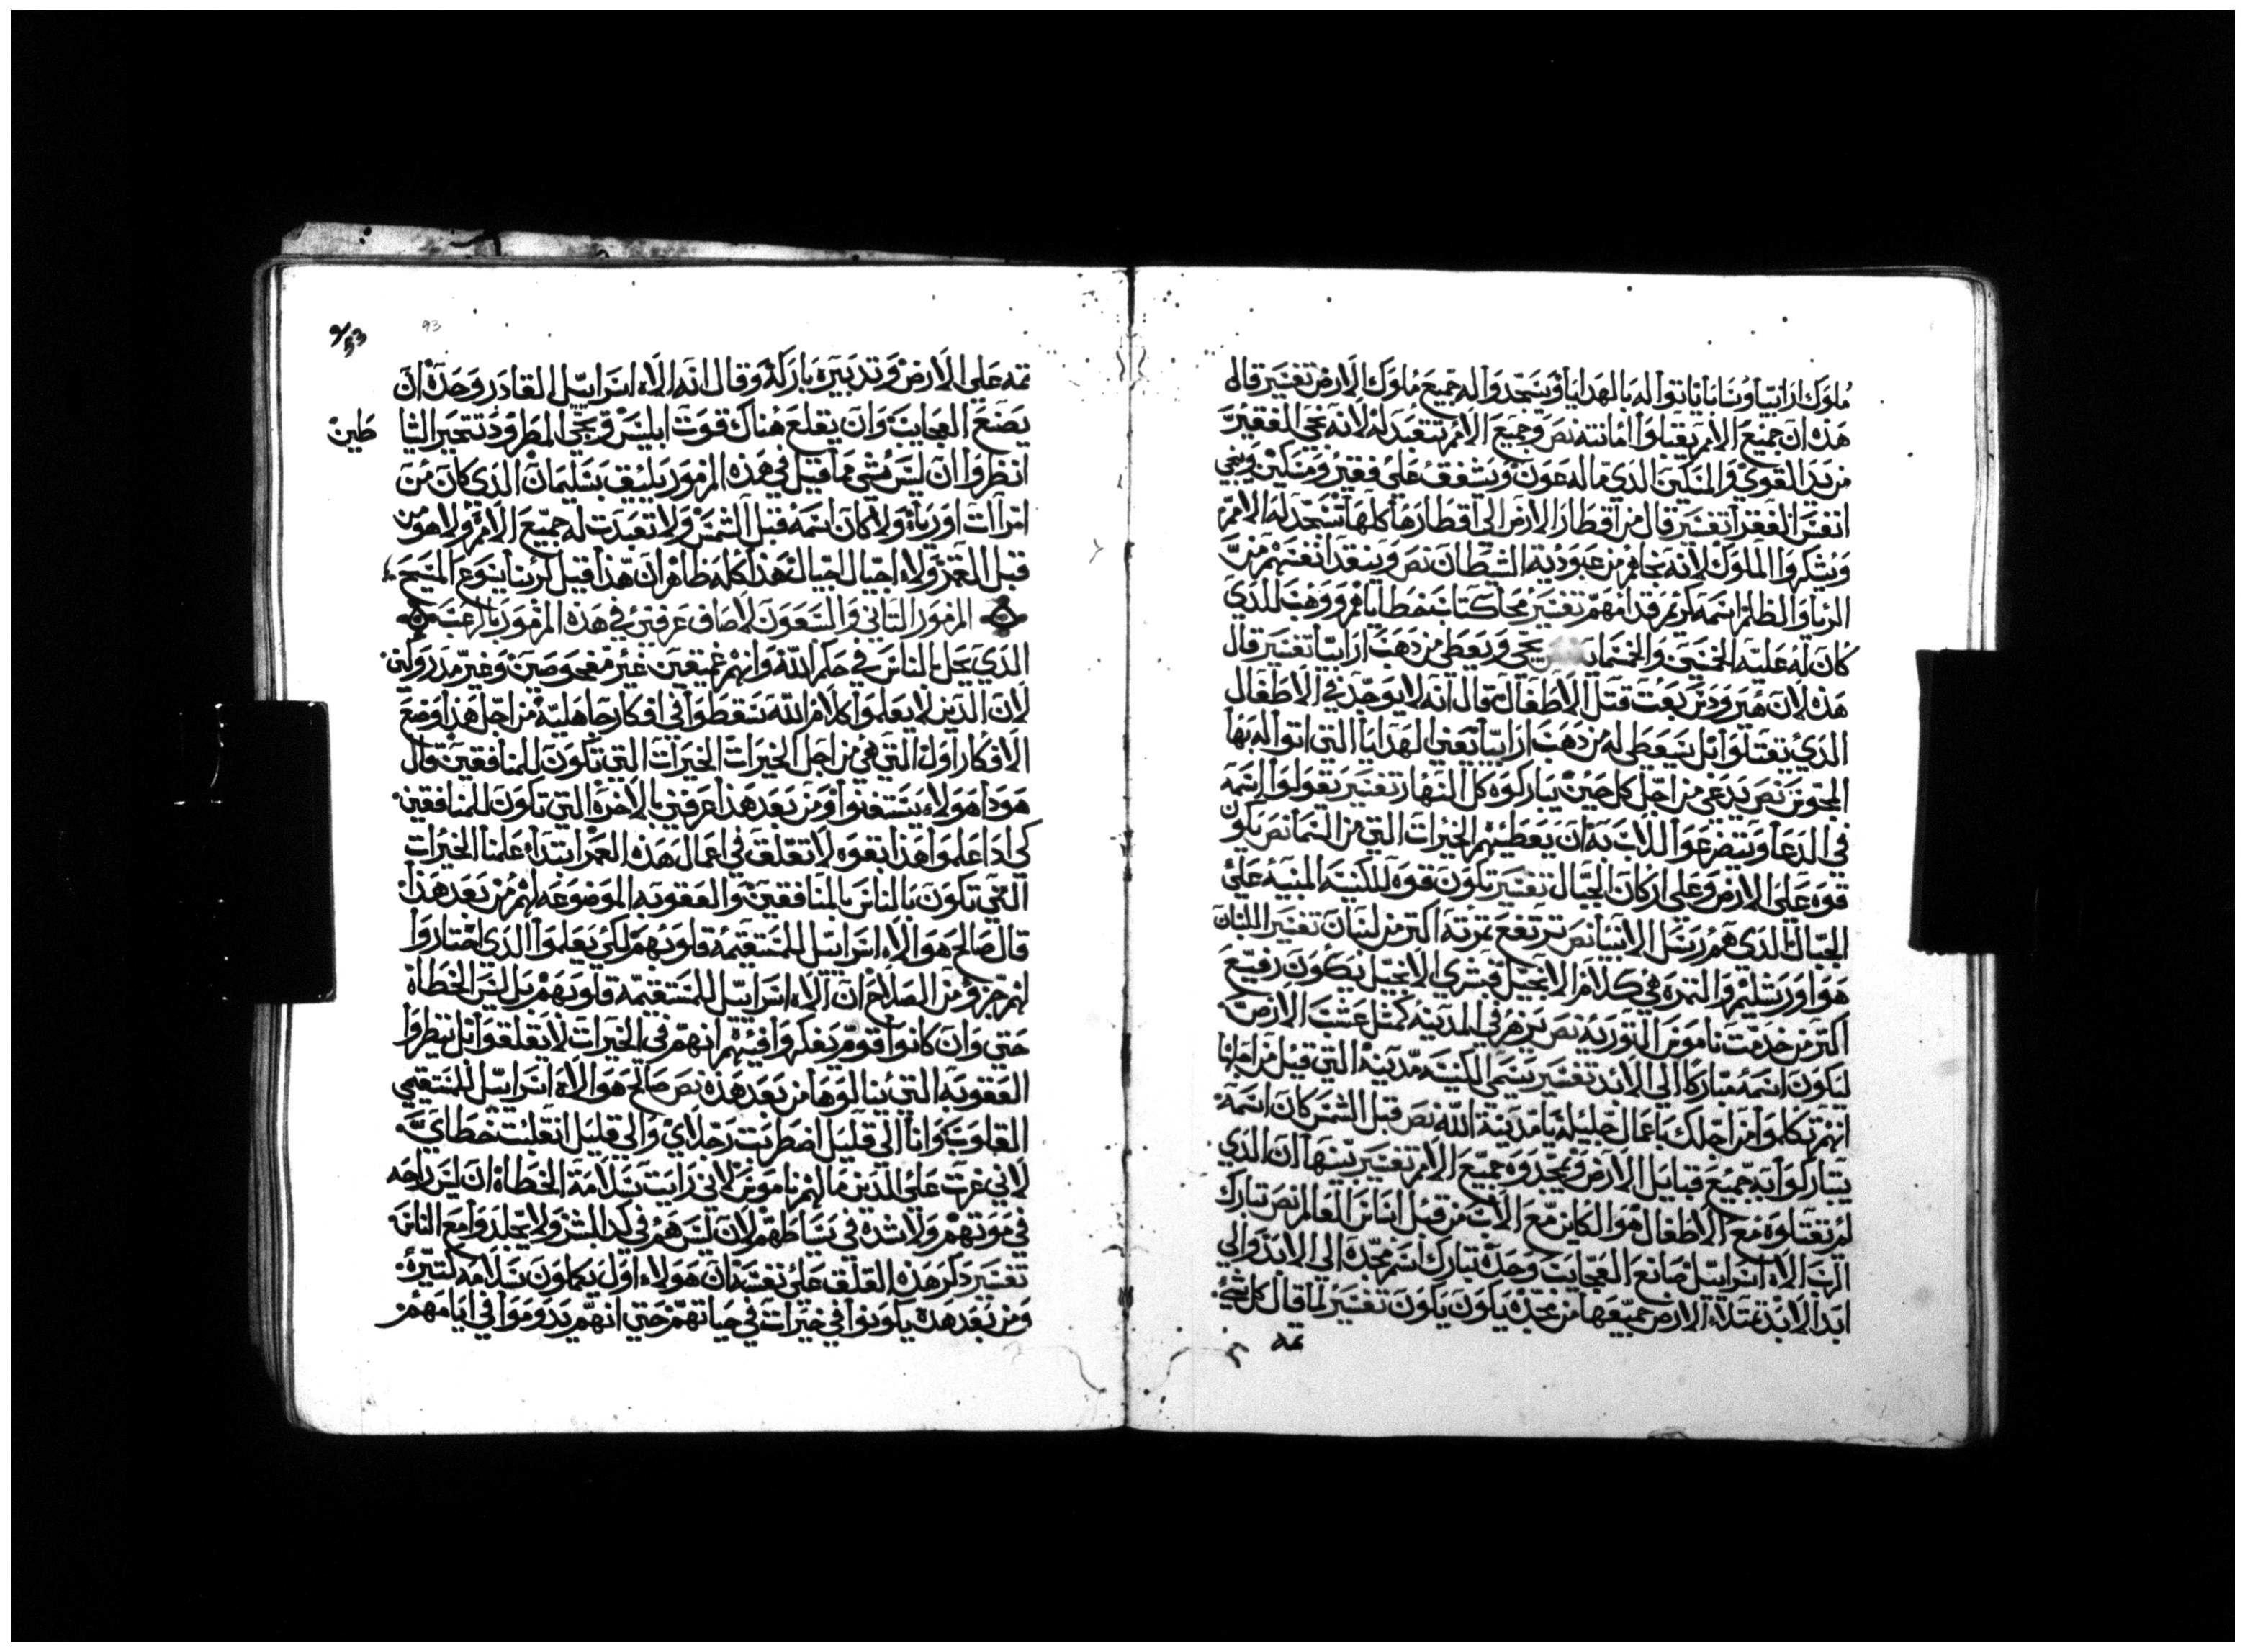 ملوك ارابيا وسابا ياتوا له بالهدايا ويسجدوا له جميع ملوك الارض تفسير قال
هذه ان جميع الامم يقبلوا امانته نص وجميع الامم تتعبد له لانه نجي الفقير
من يد القوي والمسكين الذي ماله عون ويشفق علي فقير ومسكين وينجي
انفس الفقرا تفسير قال من اقطار الارض الي اقطارها كلها تسجد له الامم
ويشكروا الملوك لانه نجاهم من عبودية الشيطان نص وينقد انفسهم من
الربا والظلم اسمه كريم قدامهم تفسير محا كتاب خطاياهم ووهب للذي
كان له عليه الخمسين والخمسماية يحيي ويعطي من دهب ارابيا تفسير قال
هذه لان هيرودس بعت قتل الاطفال قال انه لا يوجد في الاطفال
الذي يقتلوا بل سيعطي له من دهب ارابيا يعني الهدايا التي اتوا له بها
المجوس نص يدعي من اجل كل حين يباركوه كل النهار تفسير يقولوا اسمه
في الدعا ويتضرعوا للاب به ان يعطيهم الخيرات التي من السما نص يكون
قوه علي الارض وعلي اركان الجبال تفسير تكون قوه للكنيسه المبنيه علي
الجبال الذي هم رسل الانبيا نص ترتفع تمرته اكتر من لبنان تفسير اللبنان
هو اورشليم والتمره هي كلام الانجيل فبشري الانجيل يكون رفيع
اكتر من خدمت ناموس التوريه نص يزهر في المدينه كمتل عشب الارض
ليكون اسمه مباركا الي الابد تفسير يسمي الكنيسه مدينة التي قيل من اجلها
انهم تكلموا من اجلك باعمال جليله يا مدينة الله نص قبل الشمس كان اسمه
يتباركوا به جميع قبايل الارض ويمجدوه جميع الامم تفسير بينها ان الذي
لم تقتلوه مع الاطفال هو الكاين مع الاب من قبل اساس العالم نص تبارك
الرب الاه اسراييل صانع العجايب وحده تبارك اسم مجده الي الابد والي
ابد الابد تمتلا الارض جميعها من مجده يكون يكون تفسير لما قال كل شي
تمه
93
تمه علي الارض وتدبيره باركه وقال انه الاه اسراييل القادر وحده ان
يصنع العجايب وان يقلع هناك قوت ابليس وينجي المطرود تتحير الشيا
طين
انظروا ان ليس شي مما قيل في هذه المزمور يليق بسليمان الذي كان من
امرات اورياه ولا كان اسمه قبل الشمس ولا تعبدت له جميع الامم ولا هو من
قبل القمر ولا اجيال الجيال هذا كله ظاهر ان هذا قيل لربنا يسوع المسيح
المزمور التاني والسبعون لاصاف عرفني في هذه المزمور يا رعب
الذي يحل بالناس في حكم الله وانهم عميقين غير مفحوصين وغير مدروكين
لان الذين لا يعلموا كلام الله يسقطوا في افكار جاهلية من اجل هذا وضع
الافكار اول التي هي من اجل الخيرات الخيرات التي تكون للمنافقين قال
هودا هولاء يستغنوا ومن بعد هذا عرفني بالاخره التي تكون للمنافقين
كي ادا علموا هذا بقوه لا تقلق في اعمال هذه العمر ابتدا علمنا الخيرات
التي تكون بالناس بالمنافقين والعقوبه الموضوعه لهم من بعد هذا
قال صالح هو الاه اسراييل للمستقيمه قلوبهم لكي يعلموا الذي اختاروا
لهم جزو من الصلاح ان الاه اسراييل للمستقيمه قلوبهم بل ليس الخطاه
حتي وان كانوا قوم يفكروا فيهم انهم في الخيرات لا يقلقوا بل ينظروا
العقوبه التي ينالوها من بعد هذه نص صالح هو الاه اسراييل للمستقيمي
القلوب وانا الي قليل اضطربت رجلاي والي قليل انقلبت خطاي
لاني غرت علي الذين مالهم ناموس لاني رايت سلامة الخطاه ان ليس راحه
في موتهم ولا شده في سياطهم لان ليس هم في كد البشر ولا يجلدوا مع الناس
تفسير ذكر هذه القلق علي نفسه ان هولاء اول يكملون بسلامه كتيره
ومن بعد هذه يكونوا في خيرات في حياتهم حتي انهم يدوموا في ايامهم